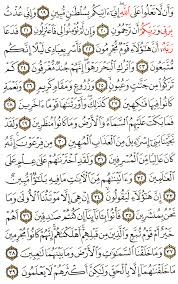 وَأَن لَّا تَعْلُوا۟ عَلَى ٱللَّهِ إِنِّىٓ ءَاتِيكُم بِسُلْطَـٰنٍ مُّبِينٍ ١٩ وَإِنِّى عُذْتُ
بِرَبِّى وَرَبِّكُمْ أَن تَرْجُمُونِ ٢٠ وَإِن لَّمْ تُؤْمِنُوا۟ لِى فَٱعْتَزِلُونِ ٢١ فَدَعَا
رَبَّهُۥٓ أَنَّ هَـٰٓؤُلَآءِ قَوْمٌ مُّجْرِمُونَ ٢٢ فَأَسْرِ بِعِبَادِى لَيْلًا إِنَّكُم
مُّتَّبَعُونَ ٢٣ وَٱتْرُكِ ٱلْبَحْرَ رَهْوًا إِنَّهُمْ جُندٌ مُّغْرَقُونَ ٢٤ كَمْ
تَرَكُوا۟ مِن جَنَّـٰتٍ وَعُيُونٍ ٢٥ وَزُرُوعٍ وَمَقَامٍ كَرِيمٍ ٢٦ وَنَعْمَةٍ
كَانُوا۟ فِيهَا فَـٰكِهِينَ ٢٧ كَذَٰلِكَ وَأَوْرَثْنَـٰهَا قَوْمًا ءَاخَرِينَ ٢٨
فَمَا بَكَتْ عَلَيْهِمُ ٱلسَّمَآءُ وَٱلْأَرْضُ وَمَا كَانُوا۟ مُنظَرِينَ ٢٩ وَلَقَدْ
نَجَّيْنَا بَنِىٓ إِسْرَٰٓءِيلَ مِنَ ٱلْعَذَابِ ٱلْمُهِينِ ٣٠ مِن فِرْعَوْنَ إِنَّهُۥ
كَانَ عَالِيًا مِّنَ ٱلْمُسْرِفِينَ ٣١ وَلَقَدِ ٱخْتَرْنَـٰهُمْ عَلَىٰ عِلْمٍ عَلَى
ٱلْعَـٰلَمِينَ ٣٢ وَءَاتَيْنَـٰهُم مِّنَ ٱلْـَٔايَـٰتِ مَا فِيهِ بَلَـٰٓؤٌا۟ مُّبِينٌ
٣٣ إِنَّ هَـٰٓؤُلَآءِ لَيَقُولُونَ ٣٤ إِنْ هِىَ إِلَّا مَوْتَتُنَا ٱلْأُولَىٰ وَمَا
نَحْنُ بِمُنشَرِينَ ٣٥ فَأْتُوا۟ بِـَٔابَآئِنَآ إِن كُنتُمْ صَـٰدِقِينَ ٣٦ أَهُمْ
خَيْرٌ أَمْ قَوْمُ تُبَّعٍ وَٱلَّذِينَ مِن قَبْلِهِمْ أَهْلَكْنَـٰهُمْ إِنَّهُمْ كَانُوا۟ مُجْرِمِينَ
٣٧ وَمَا خَلَقْنَا ٱلسَّمَـٰوَٰتِ وَٱلْأَرْضَ وَمَا بَيْنَهُمَا لَـٰعِبِينَ
٣٨ مَا خَلَقْنَـٰهُمَآ إِلَّا بِٱلْحَقِّ وَلَـٰكِنَّ أَكْثَرَهُمْ لَا يَعْلَمُونَ ٣٩